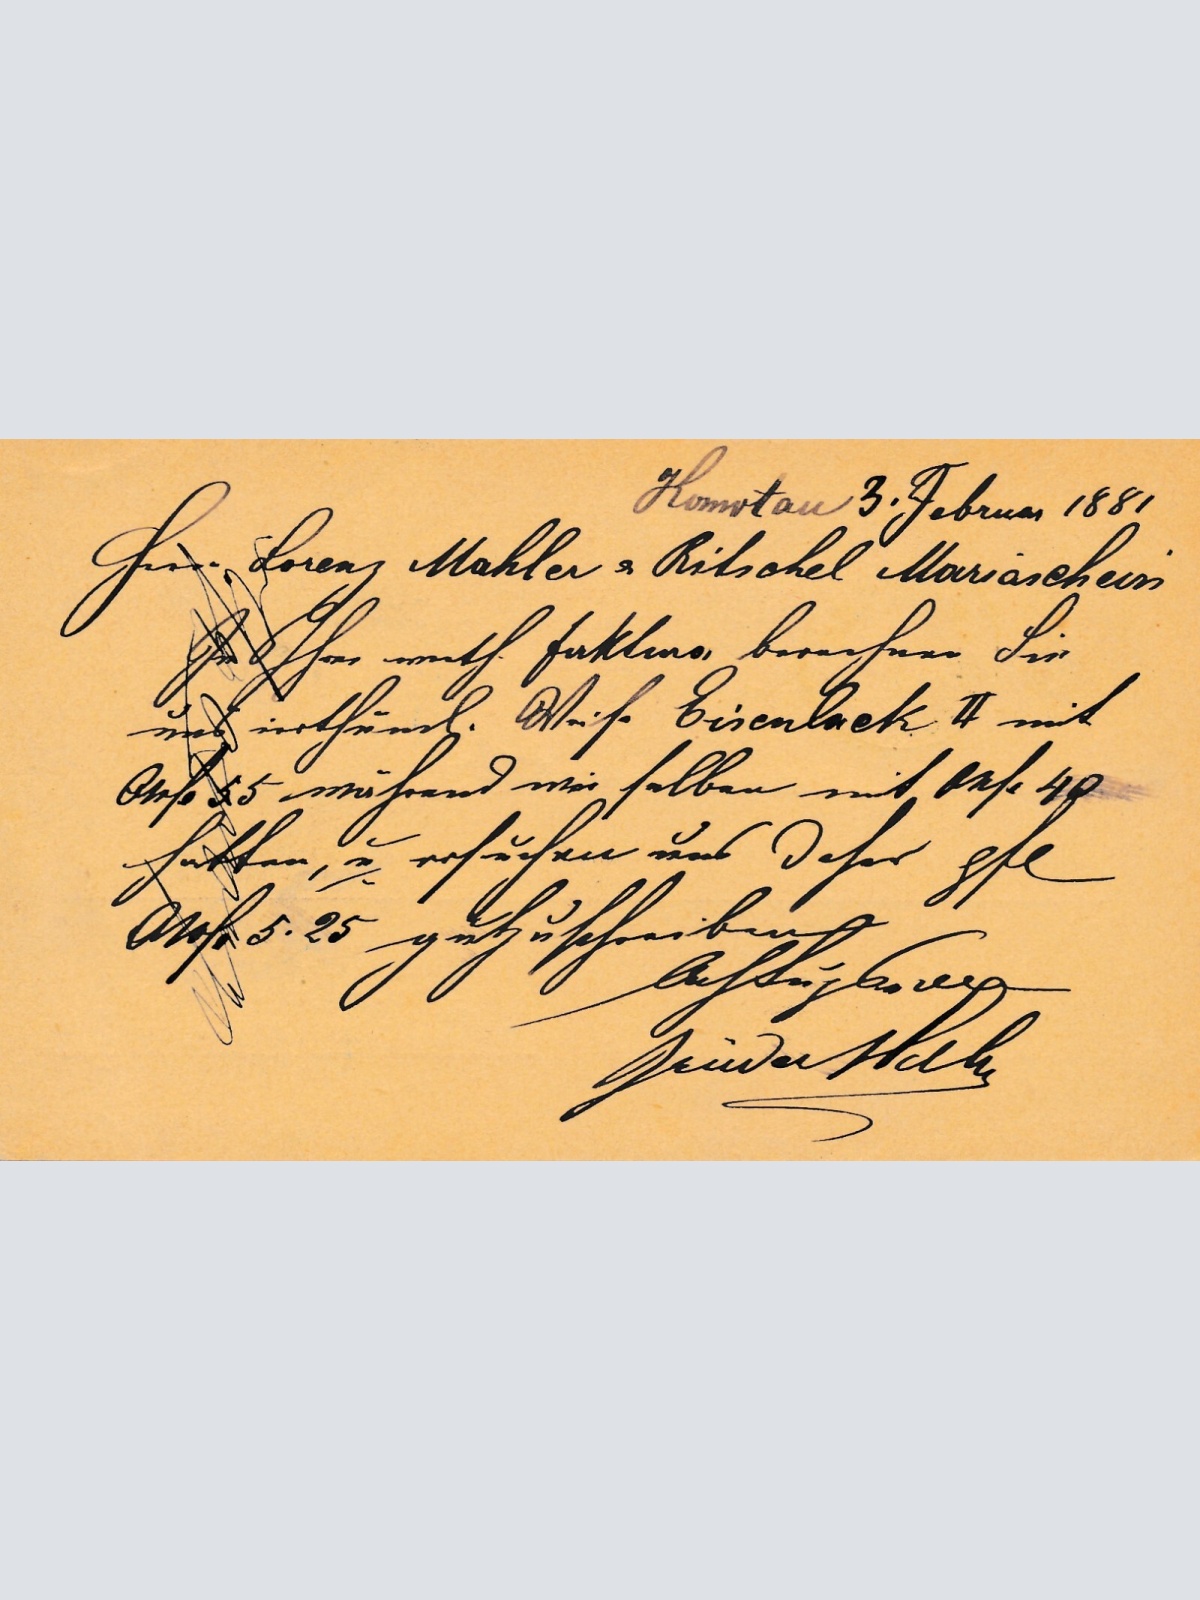 Komotau 3. Februar 1881
Herrn Lorenz Mahler & Ritschel Mariaschein
In Ihrer werth. Faktura berechnen Sie
uns irrthüml. Weiß Eisenlack II mit
55 während wir selben mit 40
hatten, u. ersuchen uns daher gfl
5.25 gutzuschreiben
Achtungsvoll
Brüder